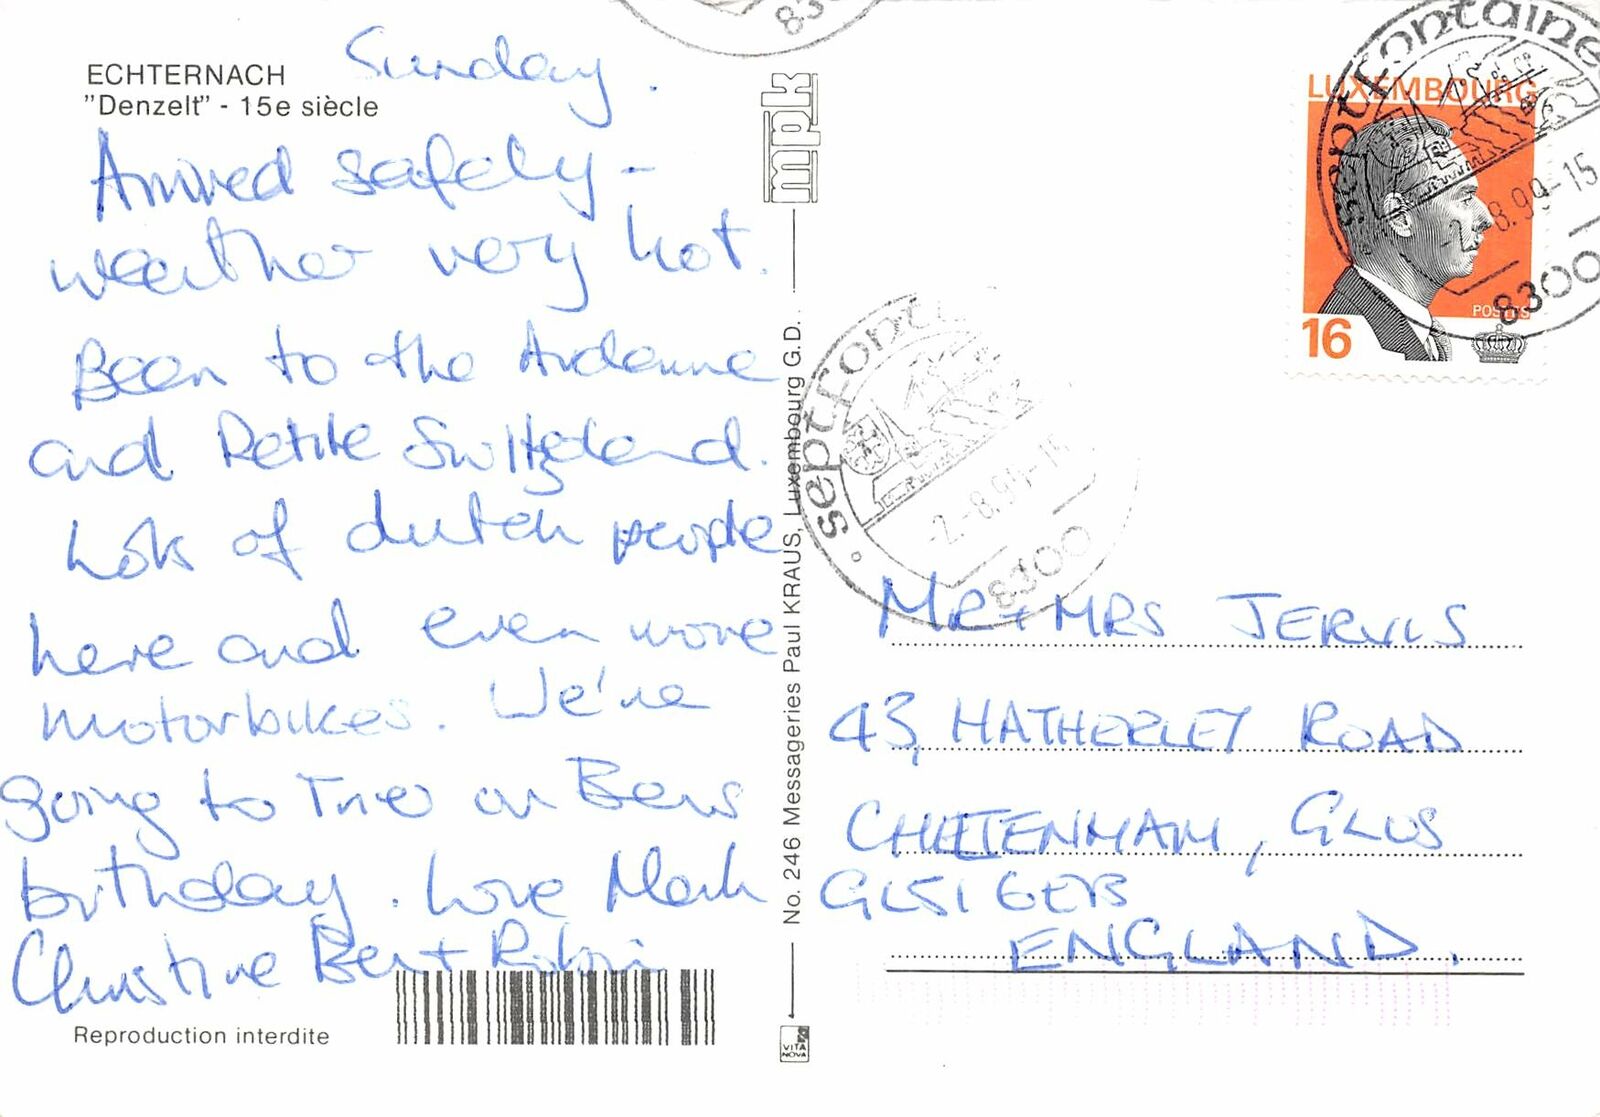 ECHTERNACH
"Denzelt" - 15e siècle
Sunday.
Arrived safely -
weather very hot.
Been to the Ardenne
and Petite Switzeland.
Lots of dutch people
here and even more
motorbikes. We're
going to Trier on Bens
birthday. Love Mark
Christine Ben + Robin
Reproduction interdite
mpk
No. 246 Messageries Paul KRAUS, Luxembourg G.D.
VITA
NOVA
septfontaines
-2.-8.94-15
8300
LUXEMBOURG
POSTES
16
septfontaines
8300
83
MR + MRS JERVIS
43, HATHERLEY ROAD
CHELTENHAM, GLOS
GL51 6EB
ENGLAND.